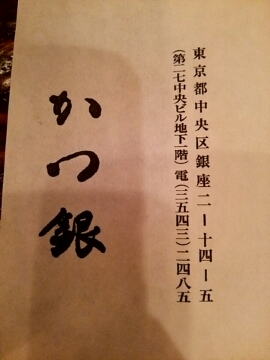 東京都中央区銀座二ー十四ー五
(第二七中央ビル地下一階)電(三五四三)二四八五
かつ銀